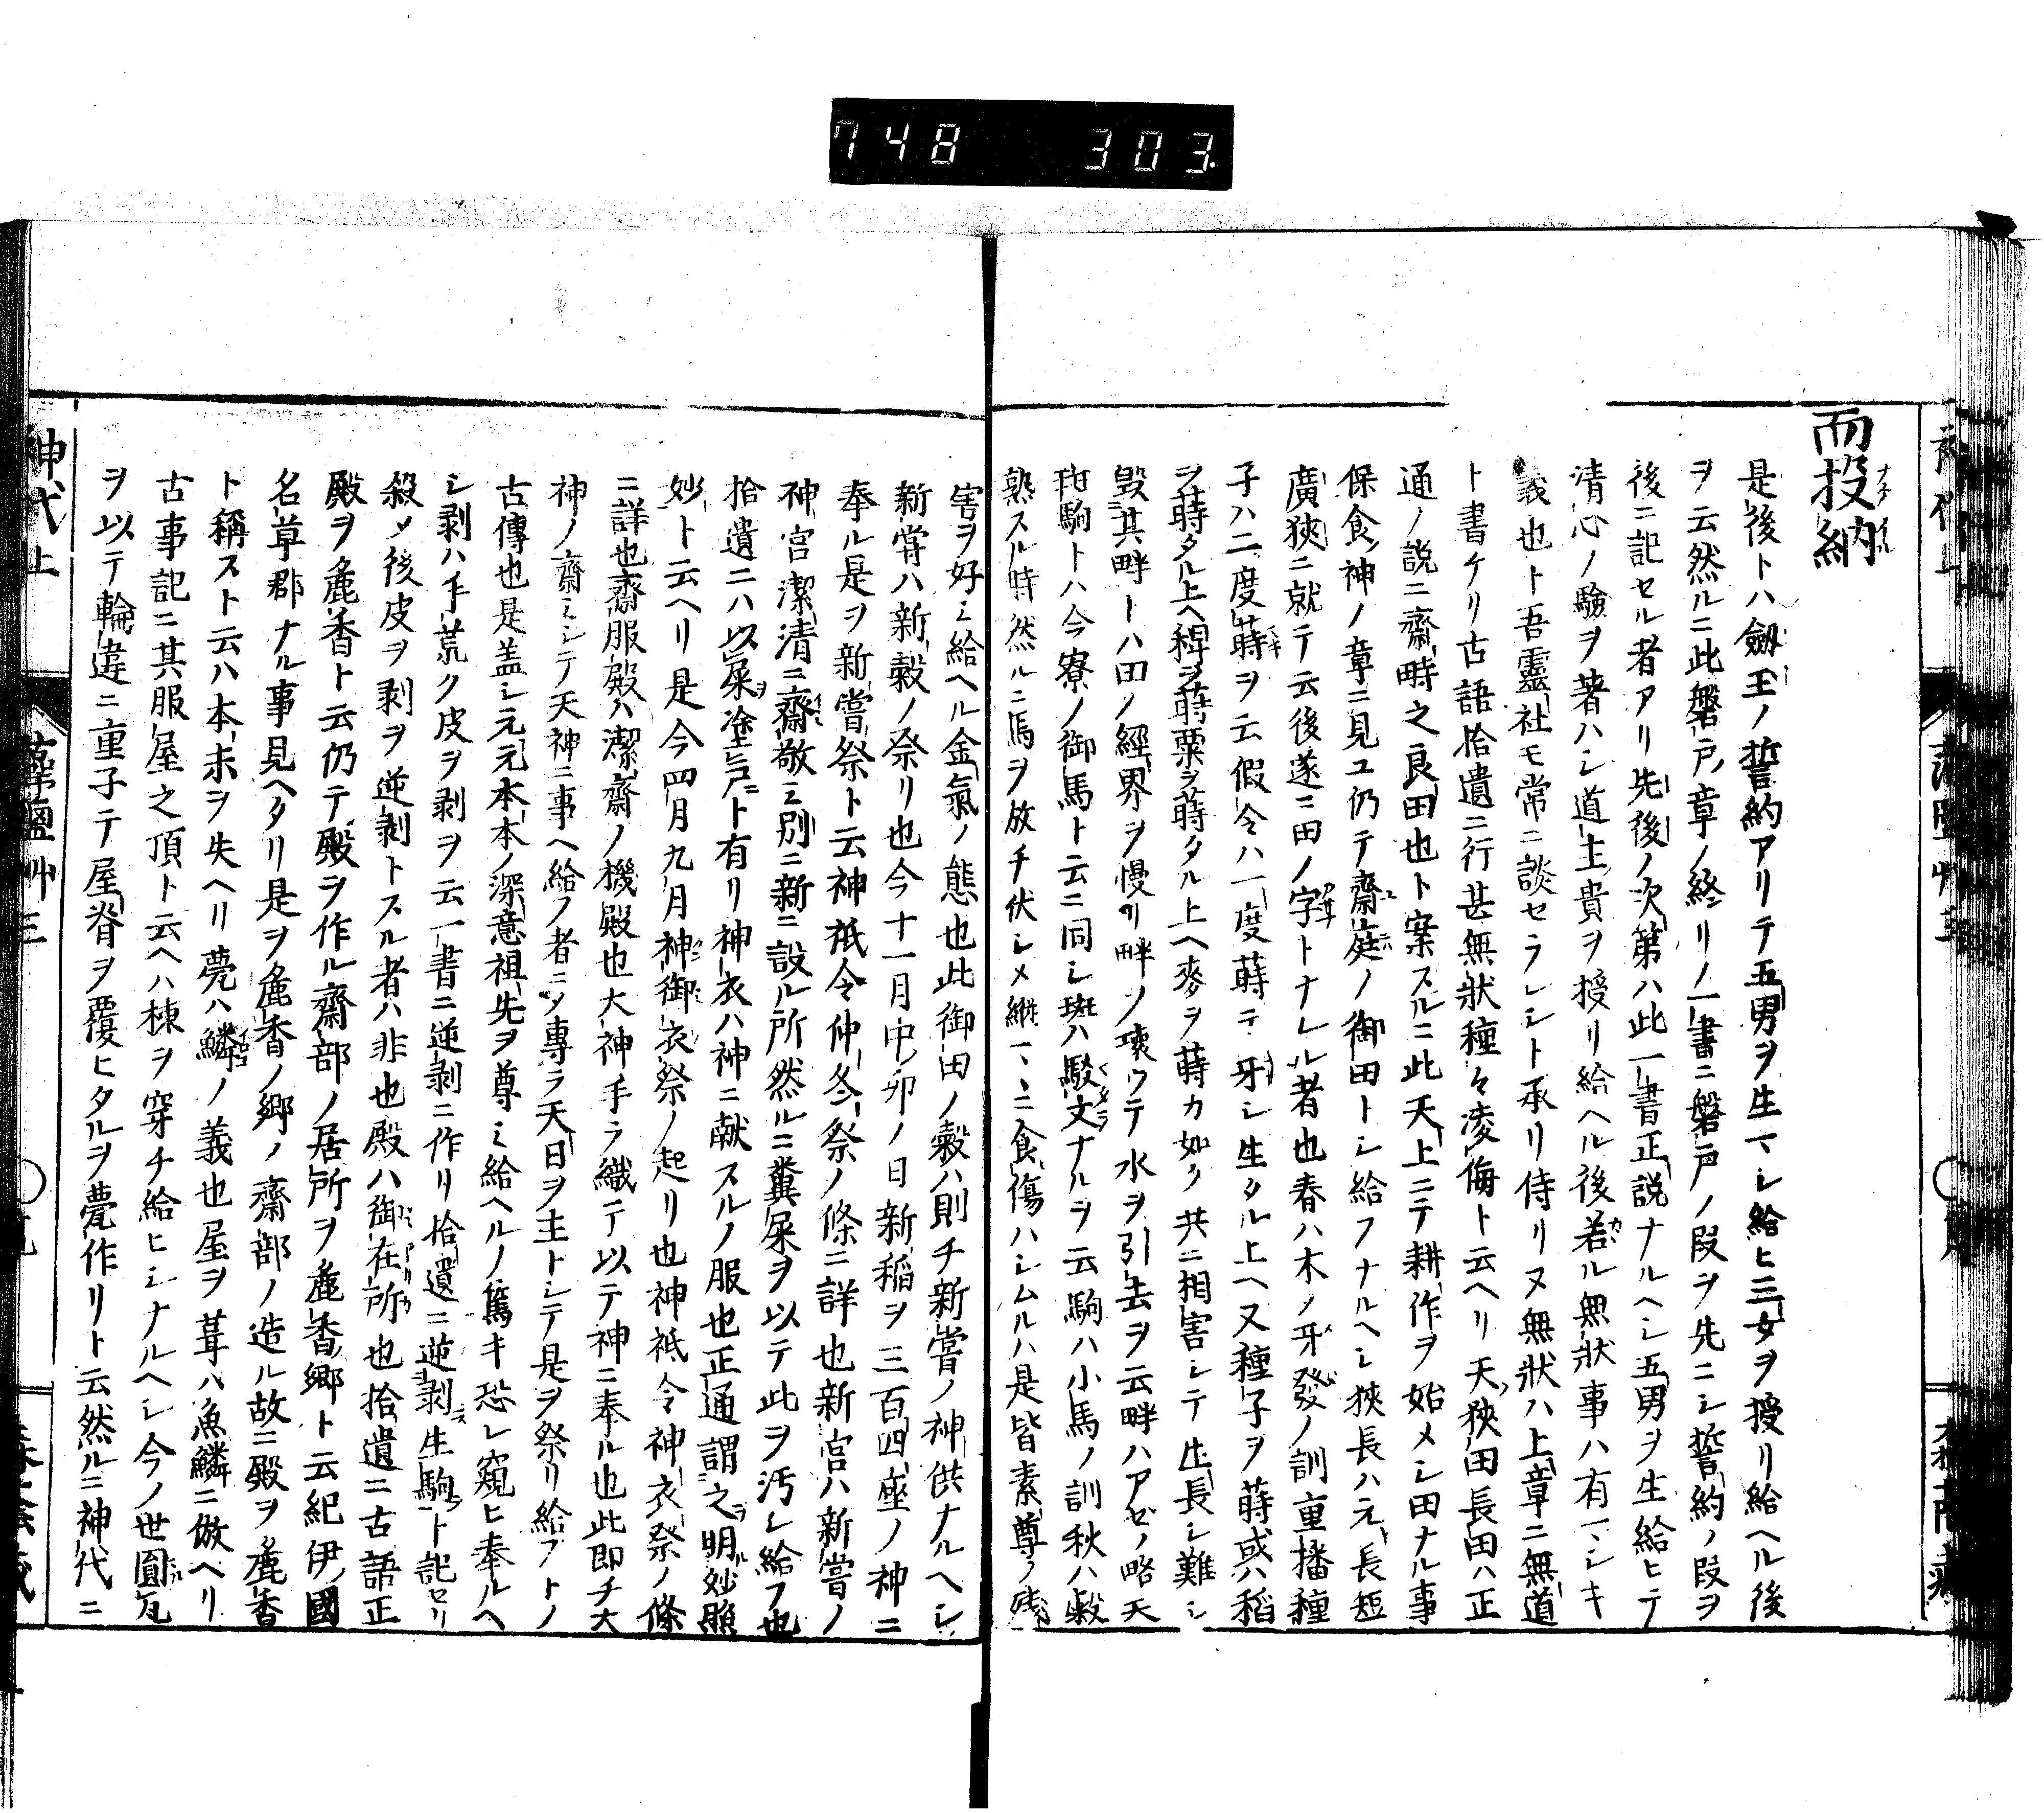 748 303
而投納
是後トハ劔玉ノ誓約アリテ五男ヲ生マシ給ヒ三女ヲ授リ給ヘル後
ヲ云然ルニ此磐戸章ノ終リノ一書ニ磐戸ノ段ヲ先ニシ誓約ノ段ヲ
後ニ記セル者アリ先後ノ次第ハ此一書正説ナルヘシ五男ヲ生給ヒテ
清心ノ驗ヲ著ハシ道主貴ヲ授リ給ヘル後若ル無狀事ハ有マシキ
義也ト吾靈社モ常ニ談セラレシト承リ侍リヌ無狀ハ上章ニ無道
ト書ケリ古語拾遺ニ行甚無狀種々凌侮ト云ヘリ天狹田長田ハ正
通ノ説ニ齋時之良田也ト案スルニ此天上ニテ耕作ヲ始メシ田ナル事
保食神ノ章ニ見ユ仍テ齋庭ノ御田トシ給フナルヘシ狹長ハ元長短
廣狹ニ就テ云後遂ニ田ノ字トナレル者也春ハ木ノ牙發ノ訓重播種
子ハ二度蒔ヲ云假令ハ一度蒔テ牙シ生タル上ヘ又種子ヲ蒔或ハ稻
ヲ蒔タル上ヘ稗ヲ蒔粟ヲ蒔タル上ヘ麥ヲ蒔カ如ク共ニ相害シテ生長シ難シ
毀其畔トハ田ノ經界ヲ慢リ畔ノ壞ウテ水ヲ引去ヲ云畔ハアゼノ略天
斑駒トハ今寮ノ御馬ト云ニ同シ斑ハ駁文ナルヲ云駒ハ小馬ノ訓秋ハ穀
熟スル時然ルニ馬ヲ放チ伏シメ縱マヽニ食傷ハシムルハ是皆素尊ノ殘
害ヲ好ミ給ヘル金氣ノ態也此御田ノ穀ハ則チ新嘗ノ神供ナルヘシ
新嘗ハ新穀ノ祭リ也今十一月中卯ノ日新稲ヲ三百四座ノ神ニ
奉ル是ヲ新嘗祭ト云神祇令仲冬祭ノ條ニ詳也新宮ハ新嘗ノ
神宮潔清ニ齋敬ミ別ニ新ニ設ル所然ルニ糞屎ヲ以テ此ヲ汚シ給フ也
拾遺ニハ以屎塗戸ト有リ神衣ハ神ニ献スルノ服也正通謂之明妙照
妙ト云ヘリ是今四月九月神御衣祭ノ起リ也神祇令神衣祭ノ條
ニ詳也齋服殿ハ潔齋ノ機殿也大神手ラ織テ以テ神ニ奉ル也此即チ大
神ノ齋ミシテ天神ニ事ヘ給フ者ニメ專ラ天日ヲ主トシテ是ヲ祭リ給フトノ
古傳也是盖シ元元本本ノ深意祖先ヲ尊ミ給ヘルノ篤キ恐レ窺ヒ奉ルヘ
シ剥ハ手荒ク皮ヲ剥ヲ云一書ニ逆剥ニ作リ拾遺ニ逆剥生駒ト記セリ
殺メ後皮ヲ剥ヲ逆剥トスル者ハ非也殿ハ御在所也拾遺ニ古語正
殿ヲ麁香ト云仍テ殿ヲ作ル齋部ノ居所ヲ麁香郷ト云紀伊國
名草郡ナル事見ヘタリ是ヲ麁香ノ郷ノ齋部ノ造ル故ニ殿ヲ麁香
ト稱スト云ハ本末ヲ失ヘリ甍ハ鱗ノ義也屋ヲ葺ハ魚鱗ニ倣ヘリ
古事記ニ其服屋之頂ト云ヘハ棟ヲ穿チ給ヒシナルヘシ今ノ世圓瓦
ヲ以テ輪違ニ重子テ屋脊ヲ覆ヒタルヲ甍作リト云然ルニ神代ニ
神代上
藻鹽艸三